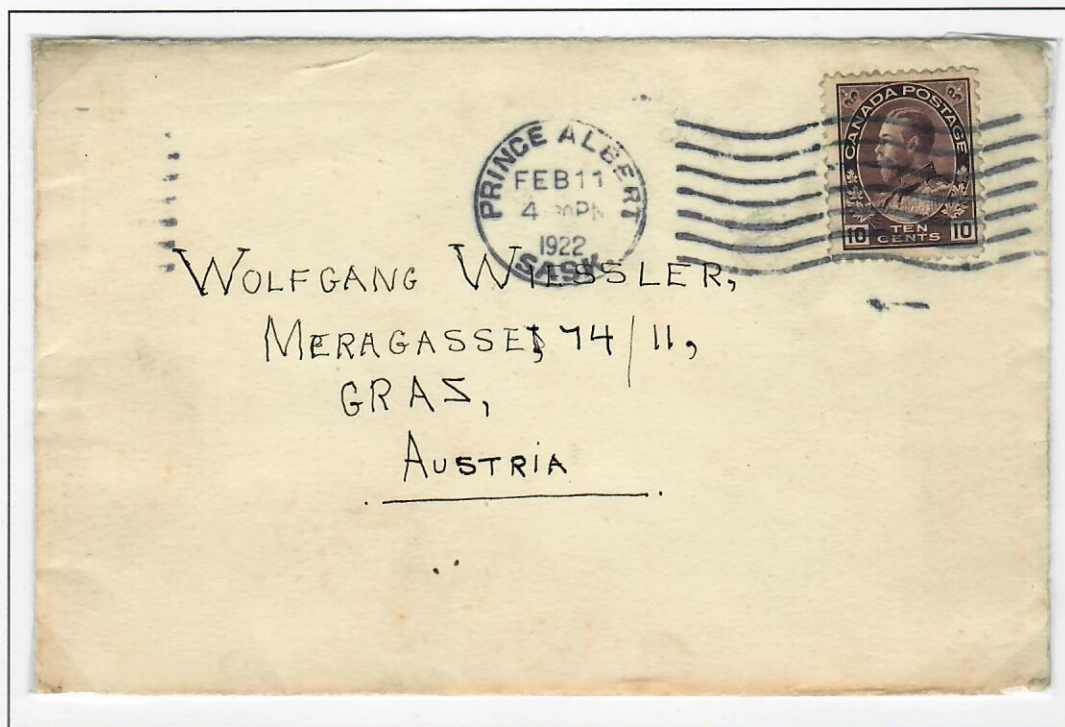 PRINCE ALBERT
FEB 11
4 30 PM
1922
SASK
CANADA POSTAGE
10 TEN CENTS 10
WOLFGANG WIESSLER,
MERAGASSE, 74/11,
GRAZ,
AUSTRIA